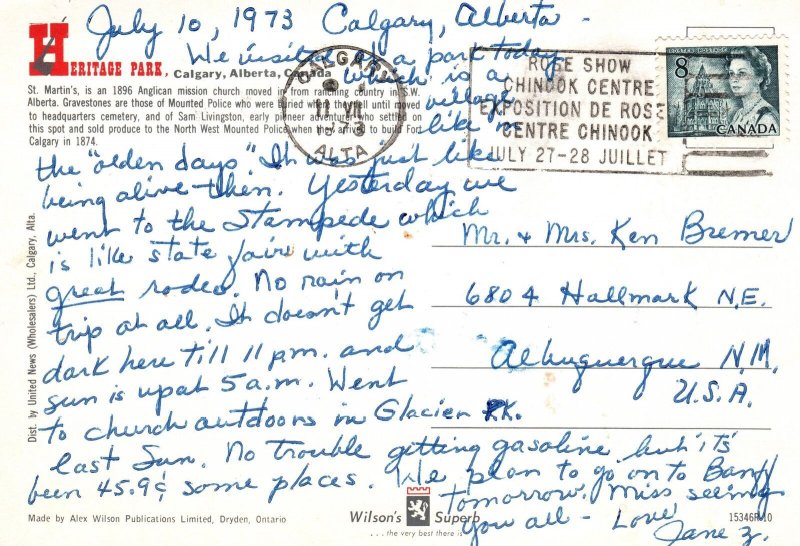 July 10, 1973 Calgary, Alberta -
We visited a park today
which is a
village
like in
the "olden days." It was just like
being alive then. Yesterday we
went to the Stampede which
is like state fair with
great rodeo. No rain on
trip at all. It doesn't get
dark here till 11 p.m. and
sun is up at 5 a.m. Went
to church outdoors in Glacier Pk.
last Sun. No trouble getting gasoline but it's
been 45.9¢ some places. We plan to go on to Banff
tomorrow. Miss seeing
you all - Love
Jane Z.
HERITAGE PARK, Calgary, Alberta, Canada
St. Martin's, is an 1896 Anglican mission church moved in from ranching country in S.W.
Alberta. Gravestones are those of Mounted Police who were buried when they fell until moved
to headquarters cemetery, and of Sam Livingston, early pioneer adventurer who settled on
this spot and sold produce to the North West Mounted Police when they arrived to build Fort
Calgary in 1874.
CALGARY
11 VII
1973
ALTA
ROSE SHOW
CHINOOK CENTRE
EXPOSITION DE ROSE
CENTRE CHINOOK
JULY 27-28 JUILLET
POSTES POSTAGE
8
CANADA
Mr. & Mrs. Ken Bremer
6804 Hallmark N.E.
Albuquerque N.M.
U.S.A.
Dist. by United News (Wholesalers) Ltd., Calgary, Alta.
Made by Alex Wilson Publications Limited, Dryden, Ontario
Wilson's Superb
... the very best there is